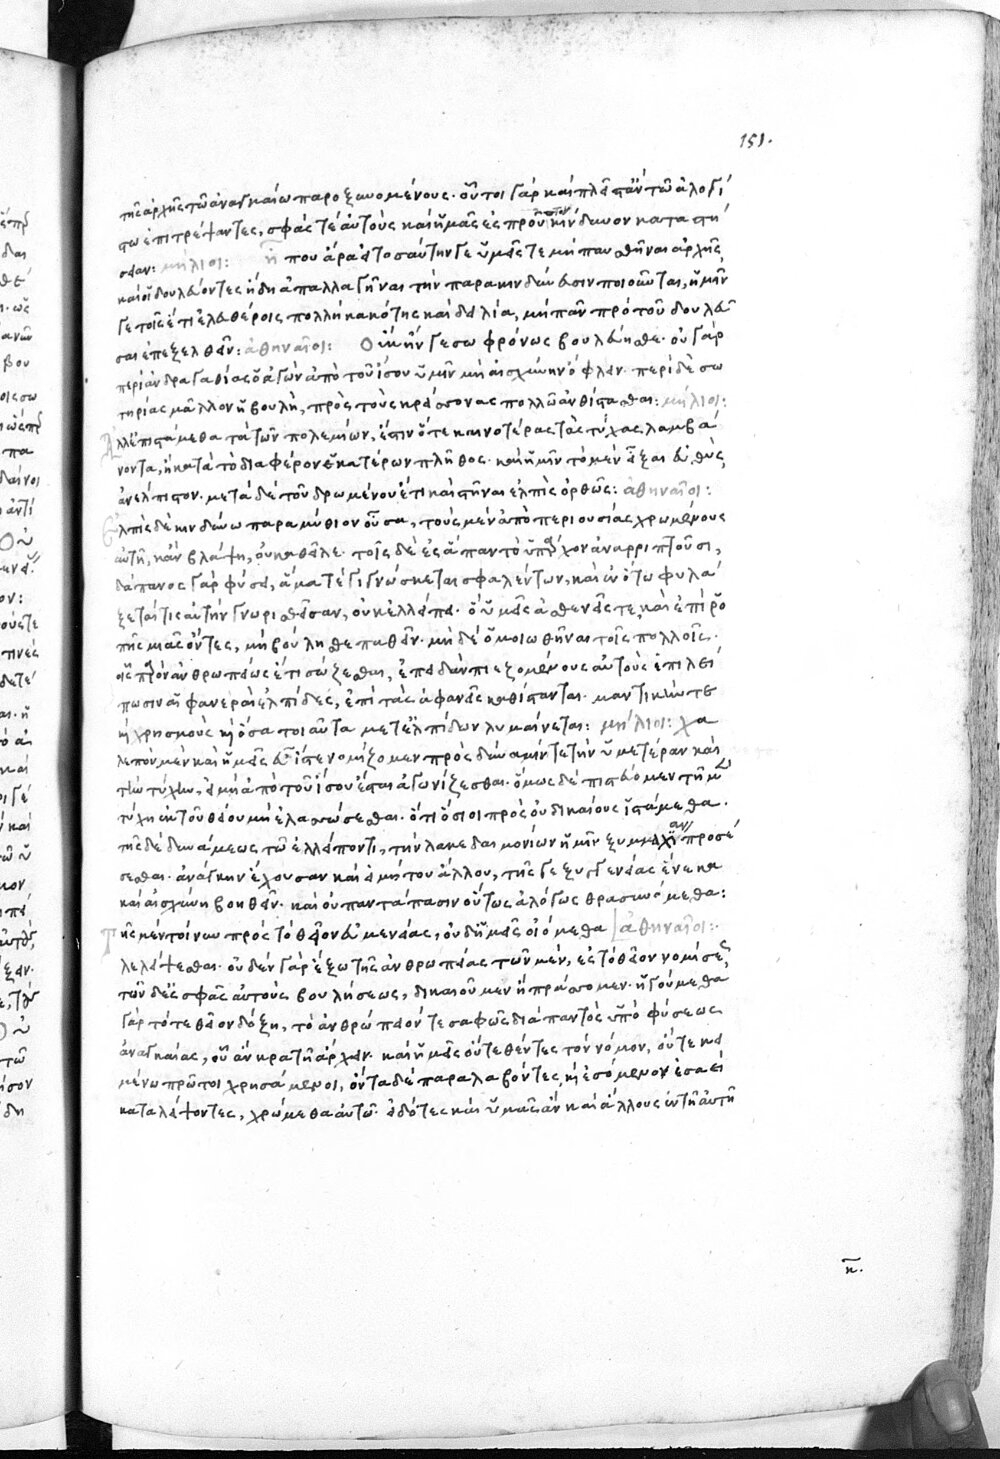 151.
τῆς ἀρχῆς τῶ ἀναγκαίω παροξυνομένους· οὗτοι γὰρ καὶ πλεῖστἂν τῶ ἀλογί
στω ἐπιτρέψαντες, σφᾶς τὲ αὐτοὺς καὶ ἡμᾶς ἐς προῦπτον κίνδυνον καταστή
σαιεν: μήλιοι: ἦ που ἄρα εἰ τοσαύτην γε ὑμεῖς τε μὴ παυσθῆναι ἀρχῆς
καὶ οἱ δουλεύοντες ἤδη ἀπαλλαγῆναι τὴν παρακινδύνευσιν ποιοῦνται, ἡμῖν
γε τοῖς ἔτι ἐλευθέροις πολλὴ κακότης καὶ δειλία, μὴ πᾶν πρὸ τοῦ δουλεῦ
σαι ἐπεξελθεῖν: ἀθηναῖοι: Οὐκ ἤν γε σωφρόνως βουλεύησθε· οὐ γὰρ
περὶ ἀνδραγαθίας ὁ ἀγὼν ἀπὸ τοῦ ἴσου ὑμῖν μὴ αἰσχύνην ὀφλεῖν· περὶ δὲ σω
τηρίας μᾶλλον ἡ βουλὴ, πρὸς τοὺς κρείσσονας πολλῶ ἀνθίστασθαι: μήλιοι:
Ἀλλ' ἐπιστάμεθα τὰ τῶν πολεμίων, ἔστιν ὅτε κοινοτέρας τὰς τύχας λαμβά
νοντα, ἢ κατὰ τὸ διαφέρον ἑκατέρων πλῆθος· καὶ ἡμῖν τὸ μὲν εἶξαι εὐθὺς
ἀνέλπιστον· μετὰ δὲ τοῦ δρωμένου ἔτι καὶ στῆναι ἐλπὶς ὀρθῶς: ἀθηναῖοι:
Ἐλπὶς δὲ κινδύνω παραμύθιον οὖσα, τοὺς μὲν ἀπὸ περιουσίας χρωμένους
αὐτῆ, κἂν βλάψη, οὐ καθεῖλε· τοῖς δὲ ἐς ἅπαν τὸ ὑπάρχον ἀναρριπτοῦσι,
δάπανος γὰρ φύσει, ἅμα τὲ γιγνώσκεται σφαλέντων, καὶ ἐν ὅτω φυλά
ξεταί τις αὐτὴν γνωρισθεῖσαν, οὐκ ἐλλείπει· ὃ ὑμεῖς ἀσθενεῖς τε, καὶ ἐπὶ ῥο
πῆς μιᾶς ὄντες, μὴ βούλησθε παθεῖν· μὴ δὲ ὁμοιωθῆναι τοῖς πολλοῖς·
οἷς παρὸν ἀνθρωπείως ἔτι σώζεσθαι, ἐπειδὰν πιεζομένους αὐτοὺς ἐπιλεί
πωσιν αἱ φανεραὶ ἐλπίδες, ἐπὶ τὰς ἀφανεῖς καθίστανται· μαντικήν τε
καὶ χρησμοὺς καὶ ὅσα τοιαῦτα μετ' ἐλπίδων λυμαίνεται: μήλιοι: χα
λεπὸν μὲν καὶ ἡμεῖς εὖ ἴστε νομίζομεν πρὸς δύναμίν τε τὴν ὑμετέραν καὶ
τὴν τύχην, εἰ μὴ ἀπὸ τοῦ ἴσου ἔσται ἀγωνίζεσθαι· ὅμως δὲ πιστεύομεν τῆ μὲν
τύχη ἐκ τοῦ θείου μὴ ἐλασσώσεσθαι· ὅτι ὅσιοι πρὸς οὐ δικαίους ἱστάμεθα·
τῆς δὲ δυνάμεως τῶ ἐλλείποντι, τὴν λακεδαιμονίων ἡμῖν ξυμμαχίαν προσέ
σεσθαι· ἀνάγκην ἔχουσαν καὶ εἰ μή του ἄλλου, τῆς γε ξυγγενείας ἕνεκα
καὶ αἰσχύνη βοηθεῖν· καὶ οὐ παντάπασιν οὕτως ἀλόγως θρασυνόμεθα:
Τῆς μὲν τοίνυν πρὸς τὸ θεῖον εὐμενείας, οὐδ' ἡμεῖς οἰόμεθα ἀθηναῖοι:
λελείψεσθαι· οὐδὲν γὰρ ἔξω τῆς ἀνθρωπείας τῶν μὲν, ἐς τὸ θεῖον νομίσεως,
τῶν δὲ ἐς σφᾶς αὐτοὺς βουλήσεως, δικαιοῦμεν ἢ πράσσομεν· ἡγούμεθα
γὰρ τό τε θεῖον δόξη, τὸ ἀνθρώπειόν τε σαφῶς διὰ παντὸς ὑπὸ φύσεως
ἀναγκαίας, οὗ ἂν κρατῆ ἄρχειν· καὶ ἡμεῖς οὔτε θέντες τὸν νόμον, οὔτε κει
μένω πρῶτοι χρησάμενοι, ὄντα δὲ παραλαβόντες, καὶ ἐσόμενον ἐσαεὶ
καταλείψοντες, χρώμεθα αὐτῶ· εἰδότες καὶ ὑμᾶς ἂν καὶ ἄλλους ἐν τῆ αὐτῆ
κ.